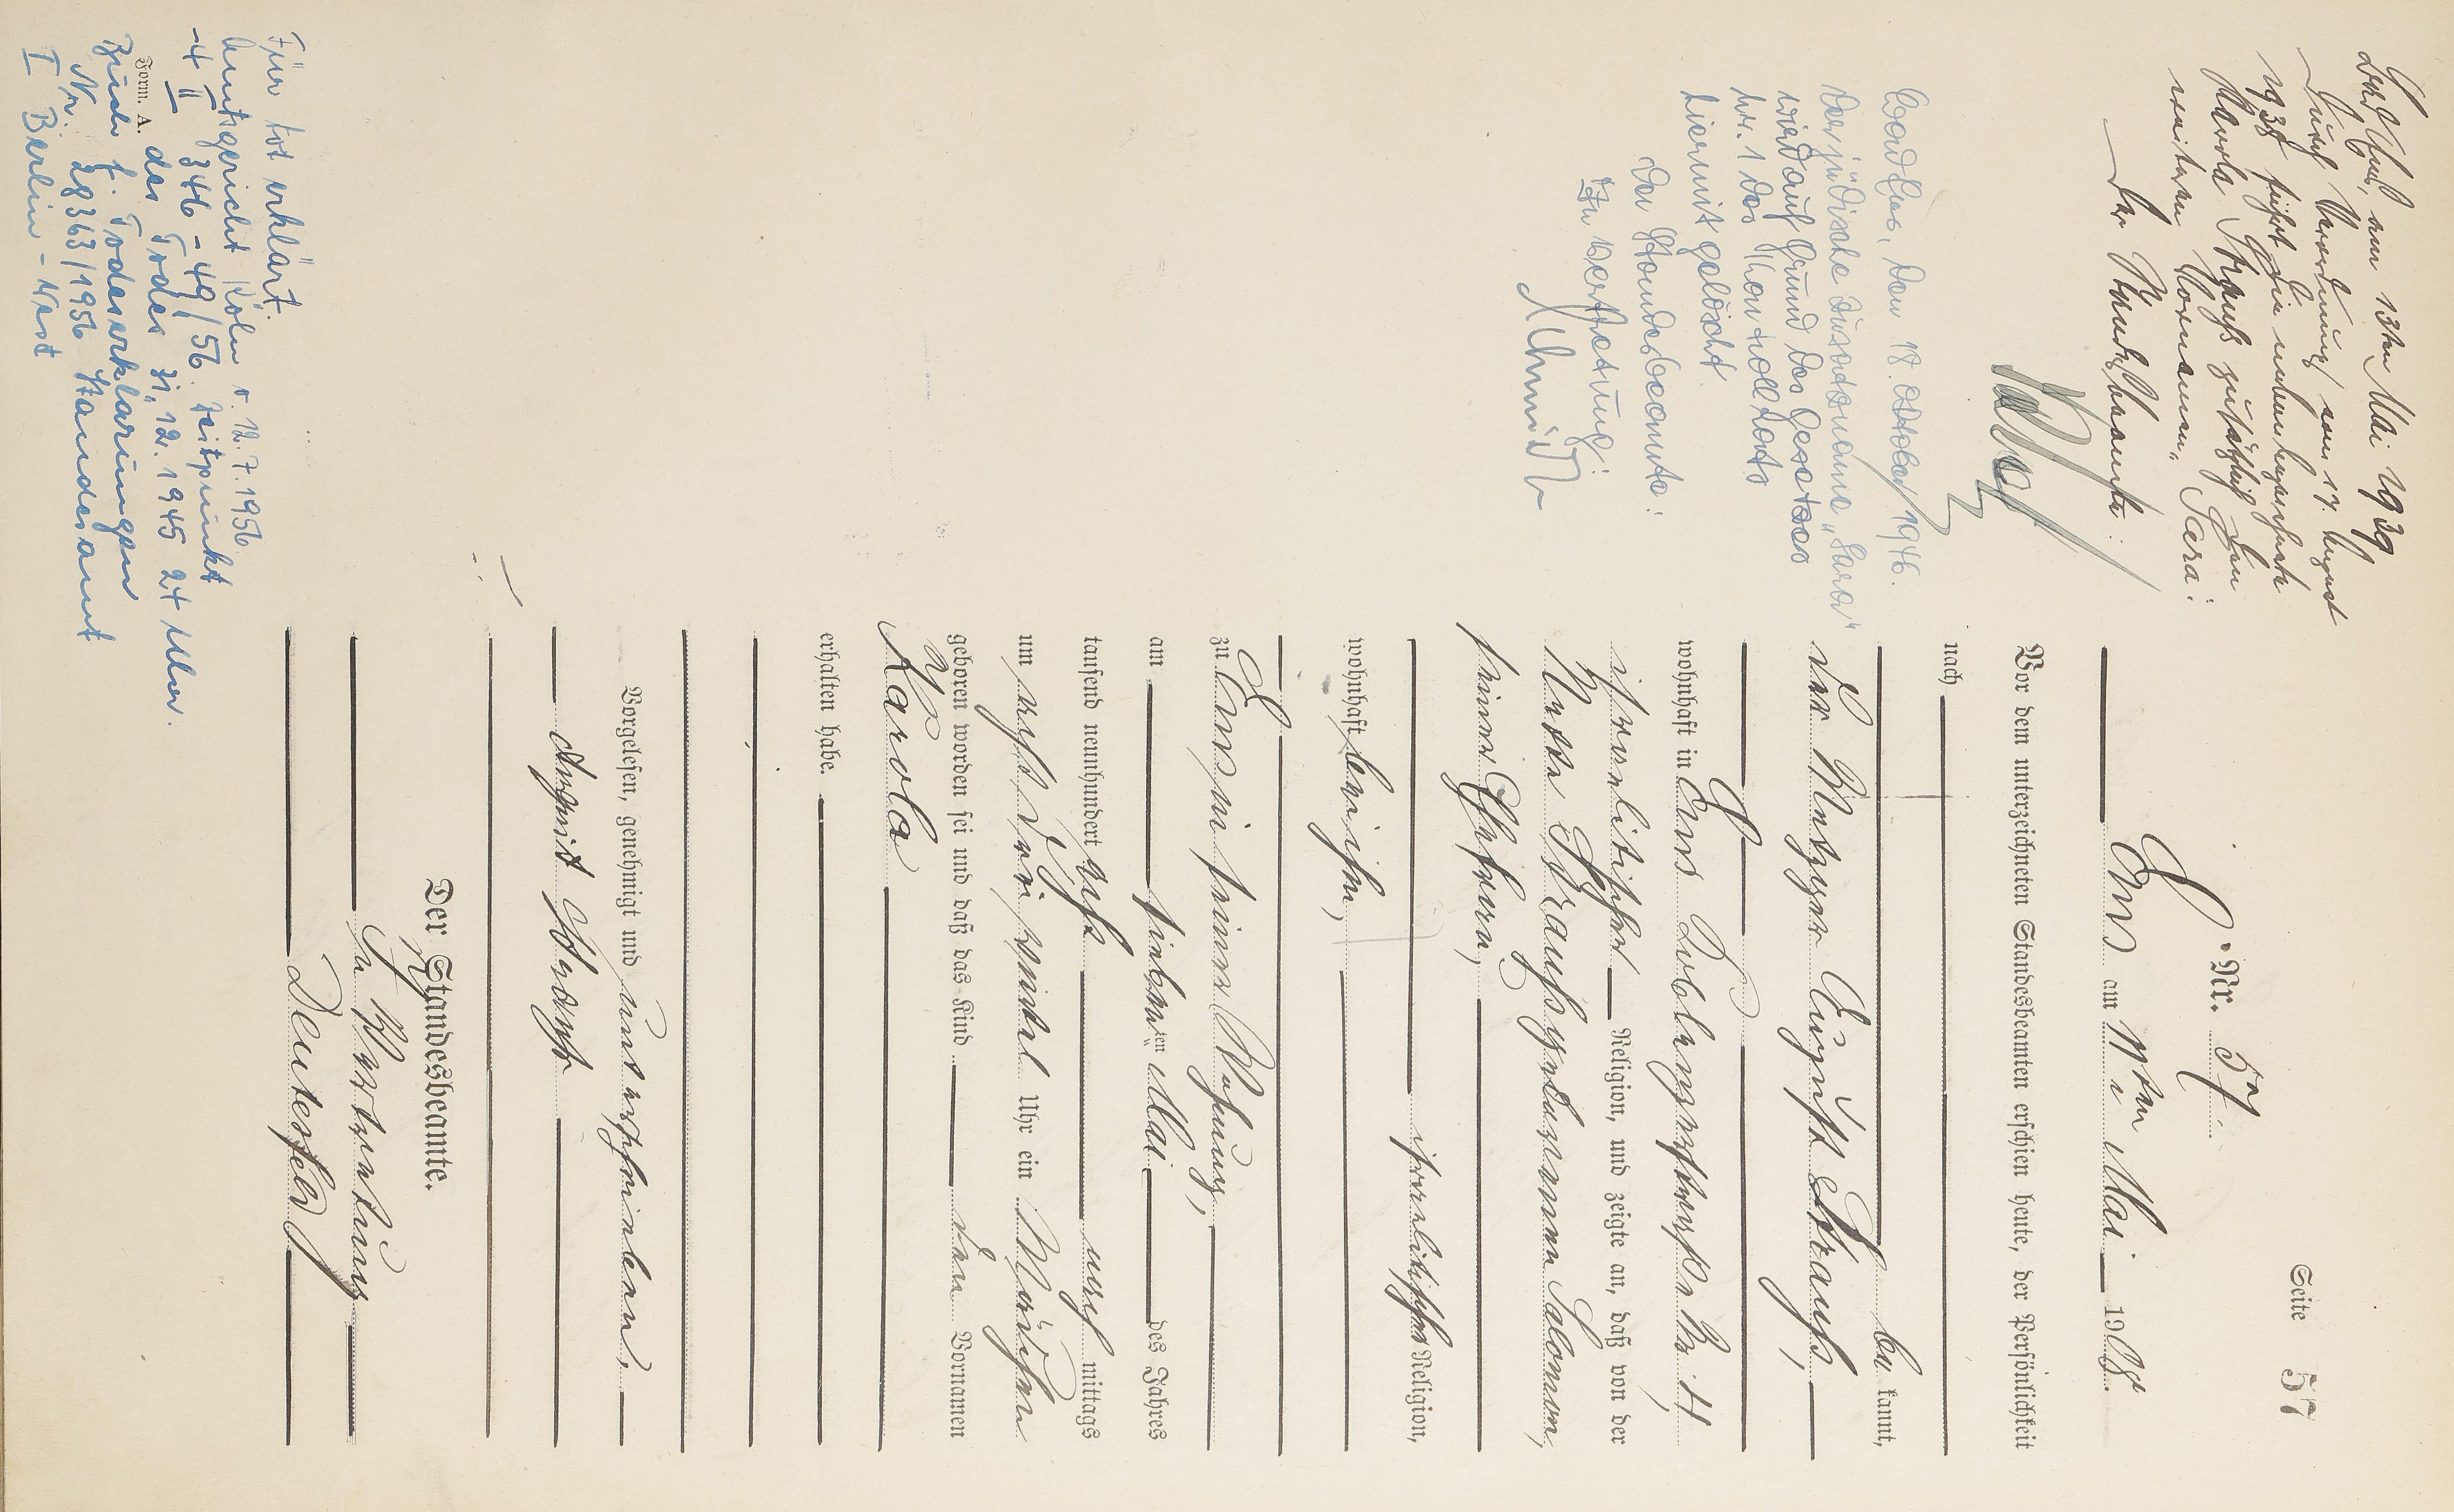 Seite 57
Nr. 57.
Ems am 11ten Mai 1908.
Vor dem unterzeichneten Standesbeamten erschien heute, der Persönlichkeit
nach
be kannt,
der Metzger August Strauß,
wohnhaft in Ems Coblenzerstraße Nr. 4
israelitischer Religion, und zeigte an, daß von der
Strauß geborenen Salomon,
seiner Ehefrau,
israelitischer Religion,
wohnhaft bei ihm,
zu Ems in seiner Wohnung,
am siebenten Mai des Jahres
tausend neunhundert acht nach mittags
um acht drei viertel Uhr ein Mädchen
geboren worden sei und daß das Kind den Vornamen
Karola
erhalten habe.
Vorgelesen, genehmigt und unterschrieben.
August Strauß
Der Standesbeamte.
In Vertretung
Deutesfeld
Bad Ems, am 13ten Mai 1939
Durch Verordnung vom 17. August
1938 führt die nebenbezeichnete
Karola Strauß zusätzlich den
weiteren Vornamen „Sara".
Der Standesbeamte:
Bad Ems, den 18. Oktober 1946.
Der jüdische Zusatzname „Sara"
wird auf Grund des Gesetzes
Nr. 1 des Kontrollrats
hiermit gelöscht.
Der Standesbeamte:
In Vertretung:
Schmidt
Für tot erklärt.
Amtsgericht Köln v. 12.7.1956
-4 II 346-49/56. Zeitpunkt
des Todes 31.12.1945 24 Uhr.
Form. A.
Buch f. Todeserklärungen
Nr. 28363/1956 Standesamt
I Berlin-West